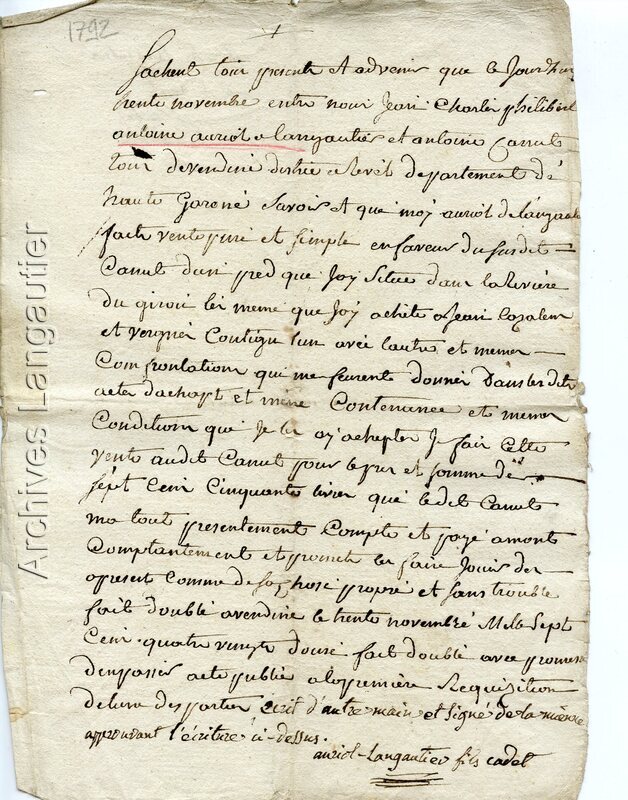 1792
Sachent tous presents et advenir que le Jourdhui
trente novembre entre nous Jean Charles philibert
antoine auriol a Langautier et antoine Canut
tous devendine distric de Revel departement dé
haute Garoné Savoir et que moÿ auriol de langautier
fait vente pure et simple en faveur du susdit
Canut dun pred que Joÿ Situé dans la Riviére
du girou les meme que Joÿ acheté a Jean Cozalem
et vergnes Contigu lun avec lautre et memes
Comfrontations qui me feurent donnés Dans les dits
actes dachapt et meme Contenance et memes
Conditions que Je les aÿ achepter Je fais Cette
vente audit Canut pour le prix et somme dé
sépt Cens Cinquante livres que ledit Canut
ma tout presentement Compté et payé amont
Comptantement et promets les faire Jouir des
apresent Comme de sa chose propré et sans trouble
fait double avendine le trente novembré Mele Sept
Cens quatre vengts douse fait double avec promesse
denpasser acte public a la première Requisition
delune des parties écrit d'autre main et signé de la mienne
approuvant l'écriture ci-dessus.
auriol-Langautier fils cadet
Archives Langautier